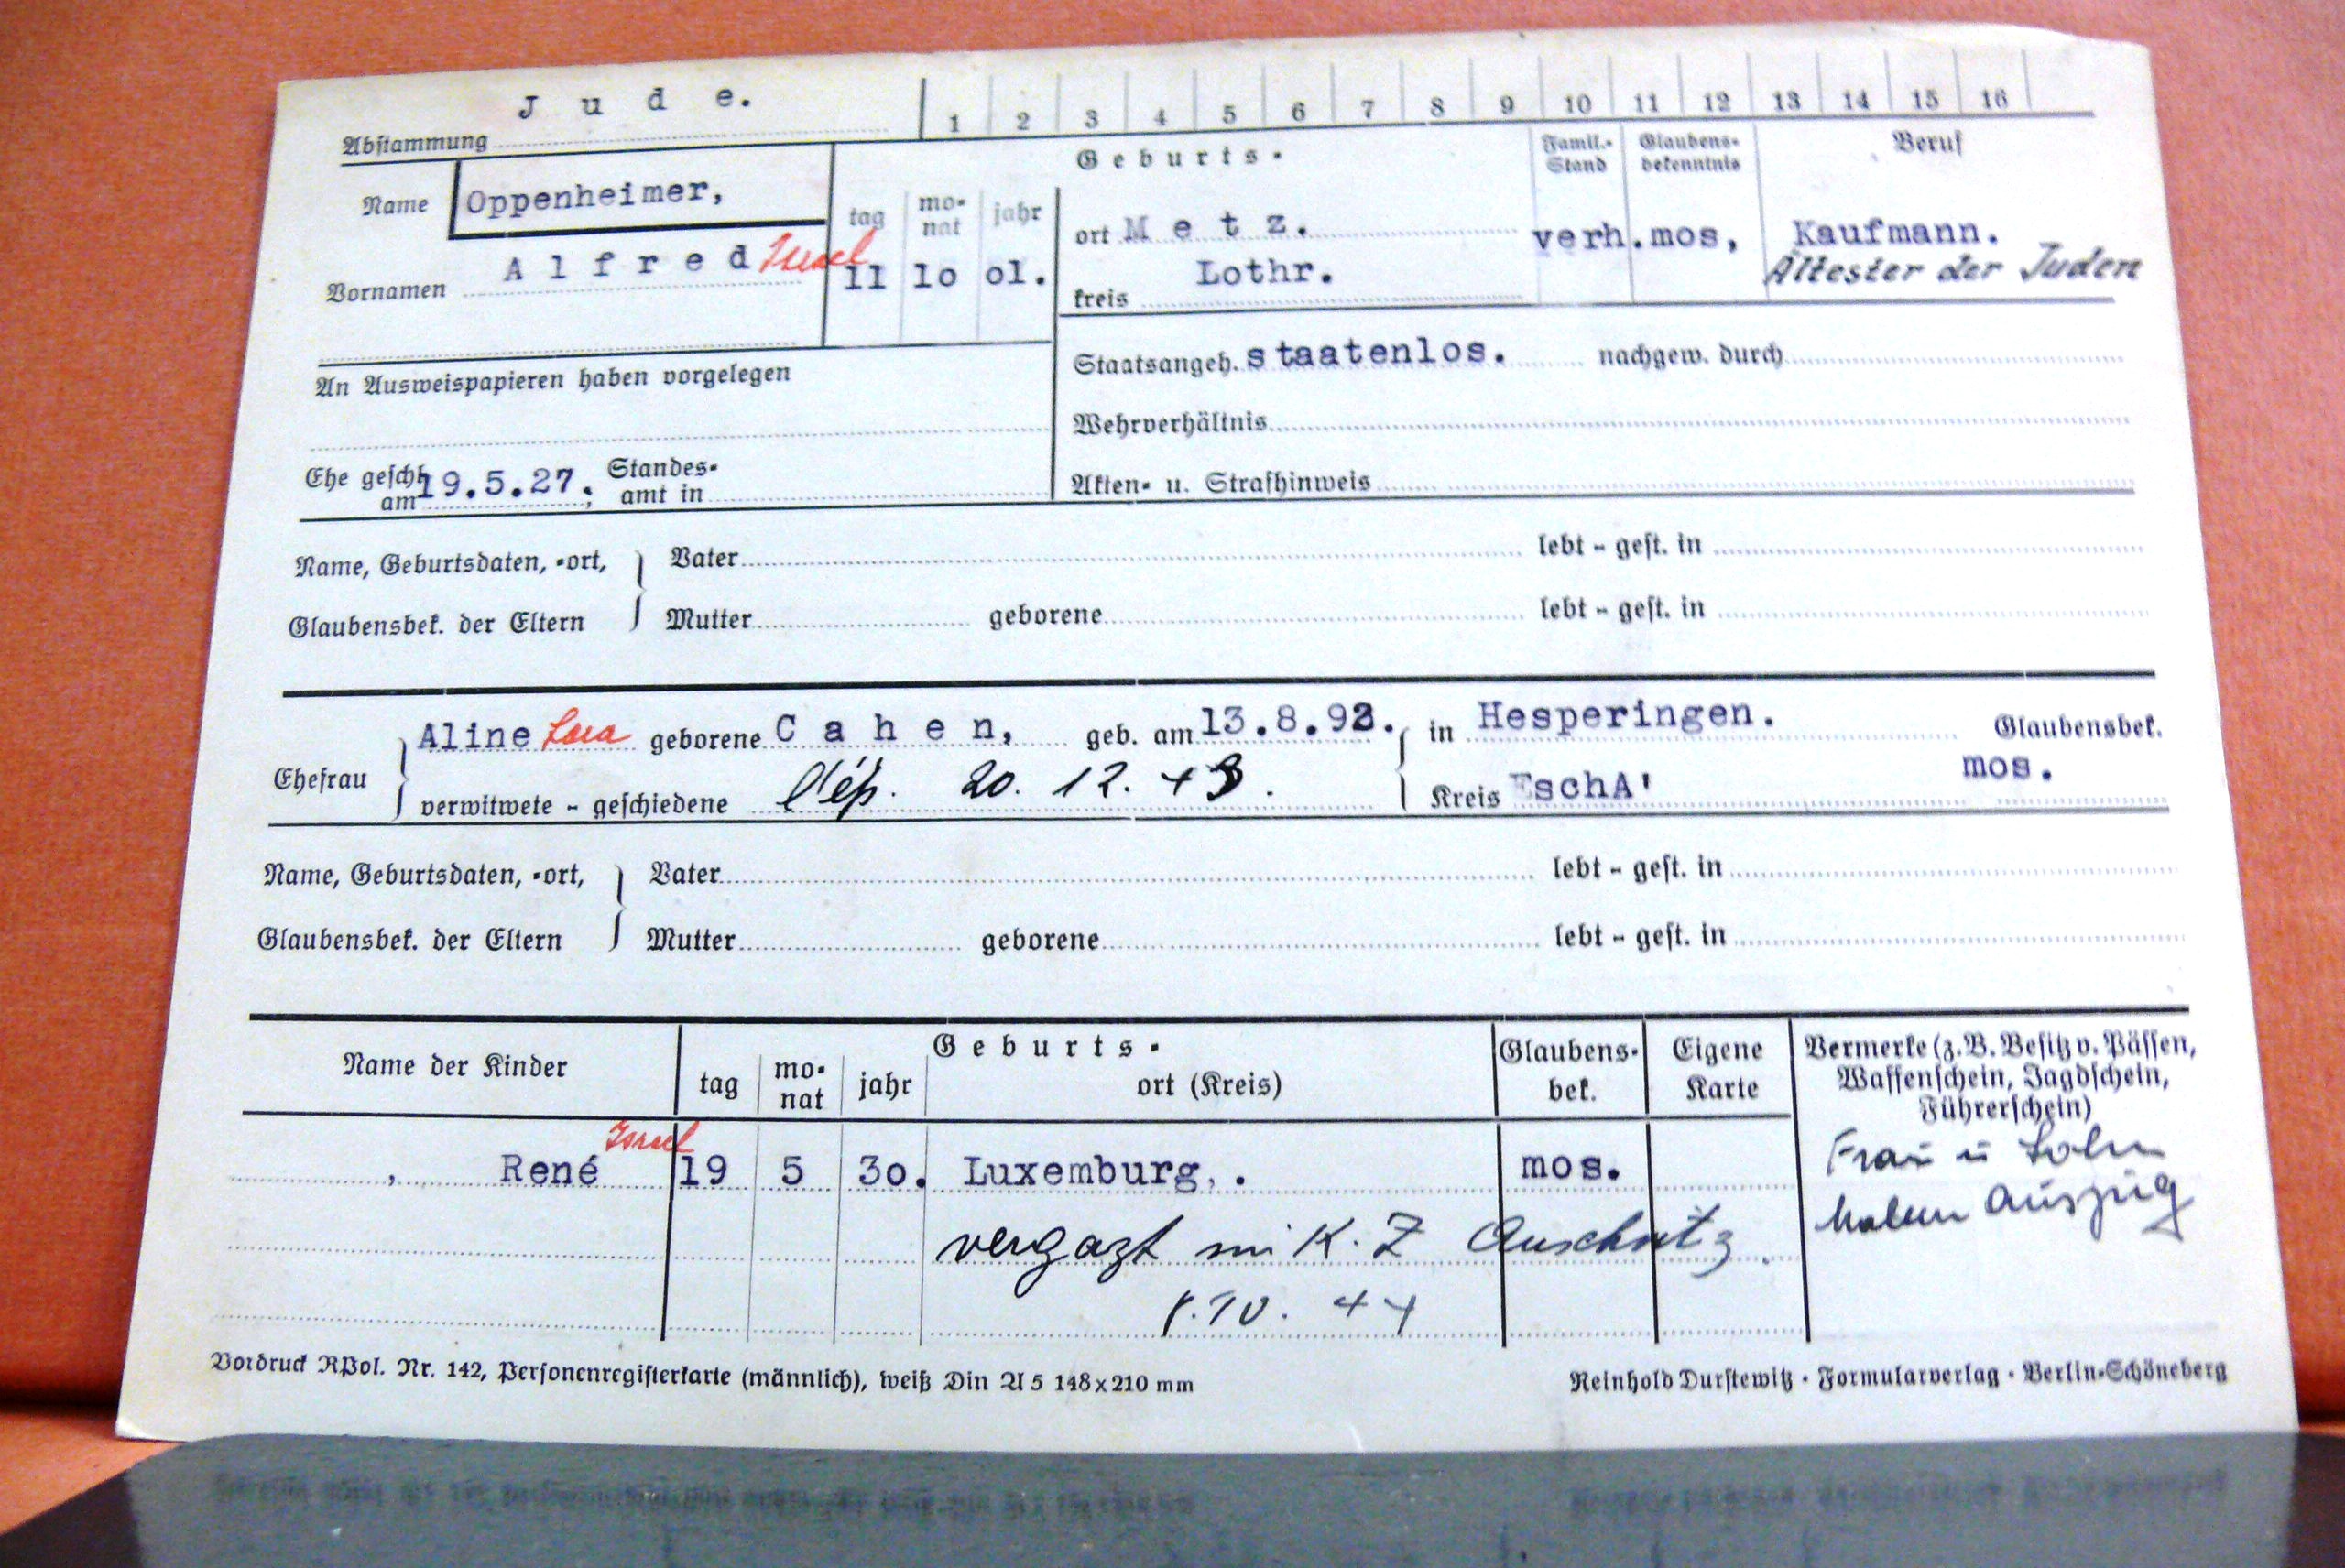 Abstammung J u d e.
1 2 3 4 5 6 7 8 9 10 11 12 13 14 15 16
Name Oppenheimer,
Vornamen A l f r e d Israel
Geburts-
tag mo-nat jahr
11 10 01.
ort M e t z.
kreis Lothr.
Famil.-Stand
verh.
Glaubens-bekenntnis
mos,
Beruf
Kaufmann.
Ältester der Juden
An Ausweispapieren haben vorgelegen
Staatsangeh. staatenlos. nachgew. durch
Wehrverhältnis
Ehe geschl. am 19.5.27. Standes-amt in
Akten- u. Strafhinweis
Name, Geburtsdaten, -ort,
Glaubensbek. der Eltern
Vater lebt - gest. in
Mutter geborene lebt - gest. in
Ehefrau
Aline Sara geborene C a h e n, geb. am 13.8.93. in Hesperingen. Glaubensbek.
verwitwete - geschiedene Dép. 20. 12. 43. Kreis EschA' mos.
Name, Geburtsdaten, -ort,
Glaubensbek. der Eltern
Vater lebt - gest. in
Mutter geborene lebt - gest. in
Name der Kinder
Geburts-
tag mo-nat jahr ort (Kreis)
Glaubens-bek.
Eigene Karte
Vermerke (z. B. Besitz v. Pässen,
Waffenschein, Jagdschein,
Führerschein)
, René Israel 19 5 30. Luxemburg, . mos.
Frau u Sohn
haben Auszug
vergazt im K. Z Auschwitz.
10. 44
Vordruck RPol. Nr. 142, Personenregisterkarte (männlich), weiß Din A 5 148x210 mm
Reinhold Durstewitz · Formularverlag · Berlin-Schöneberg